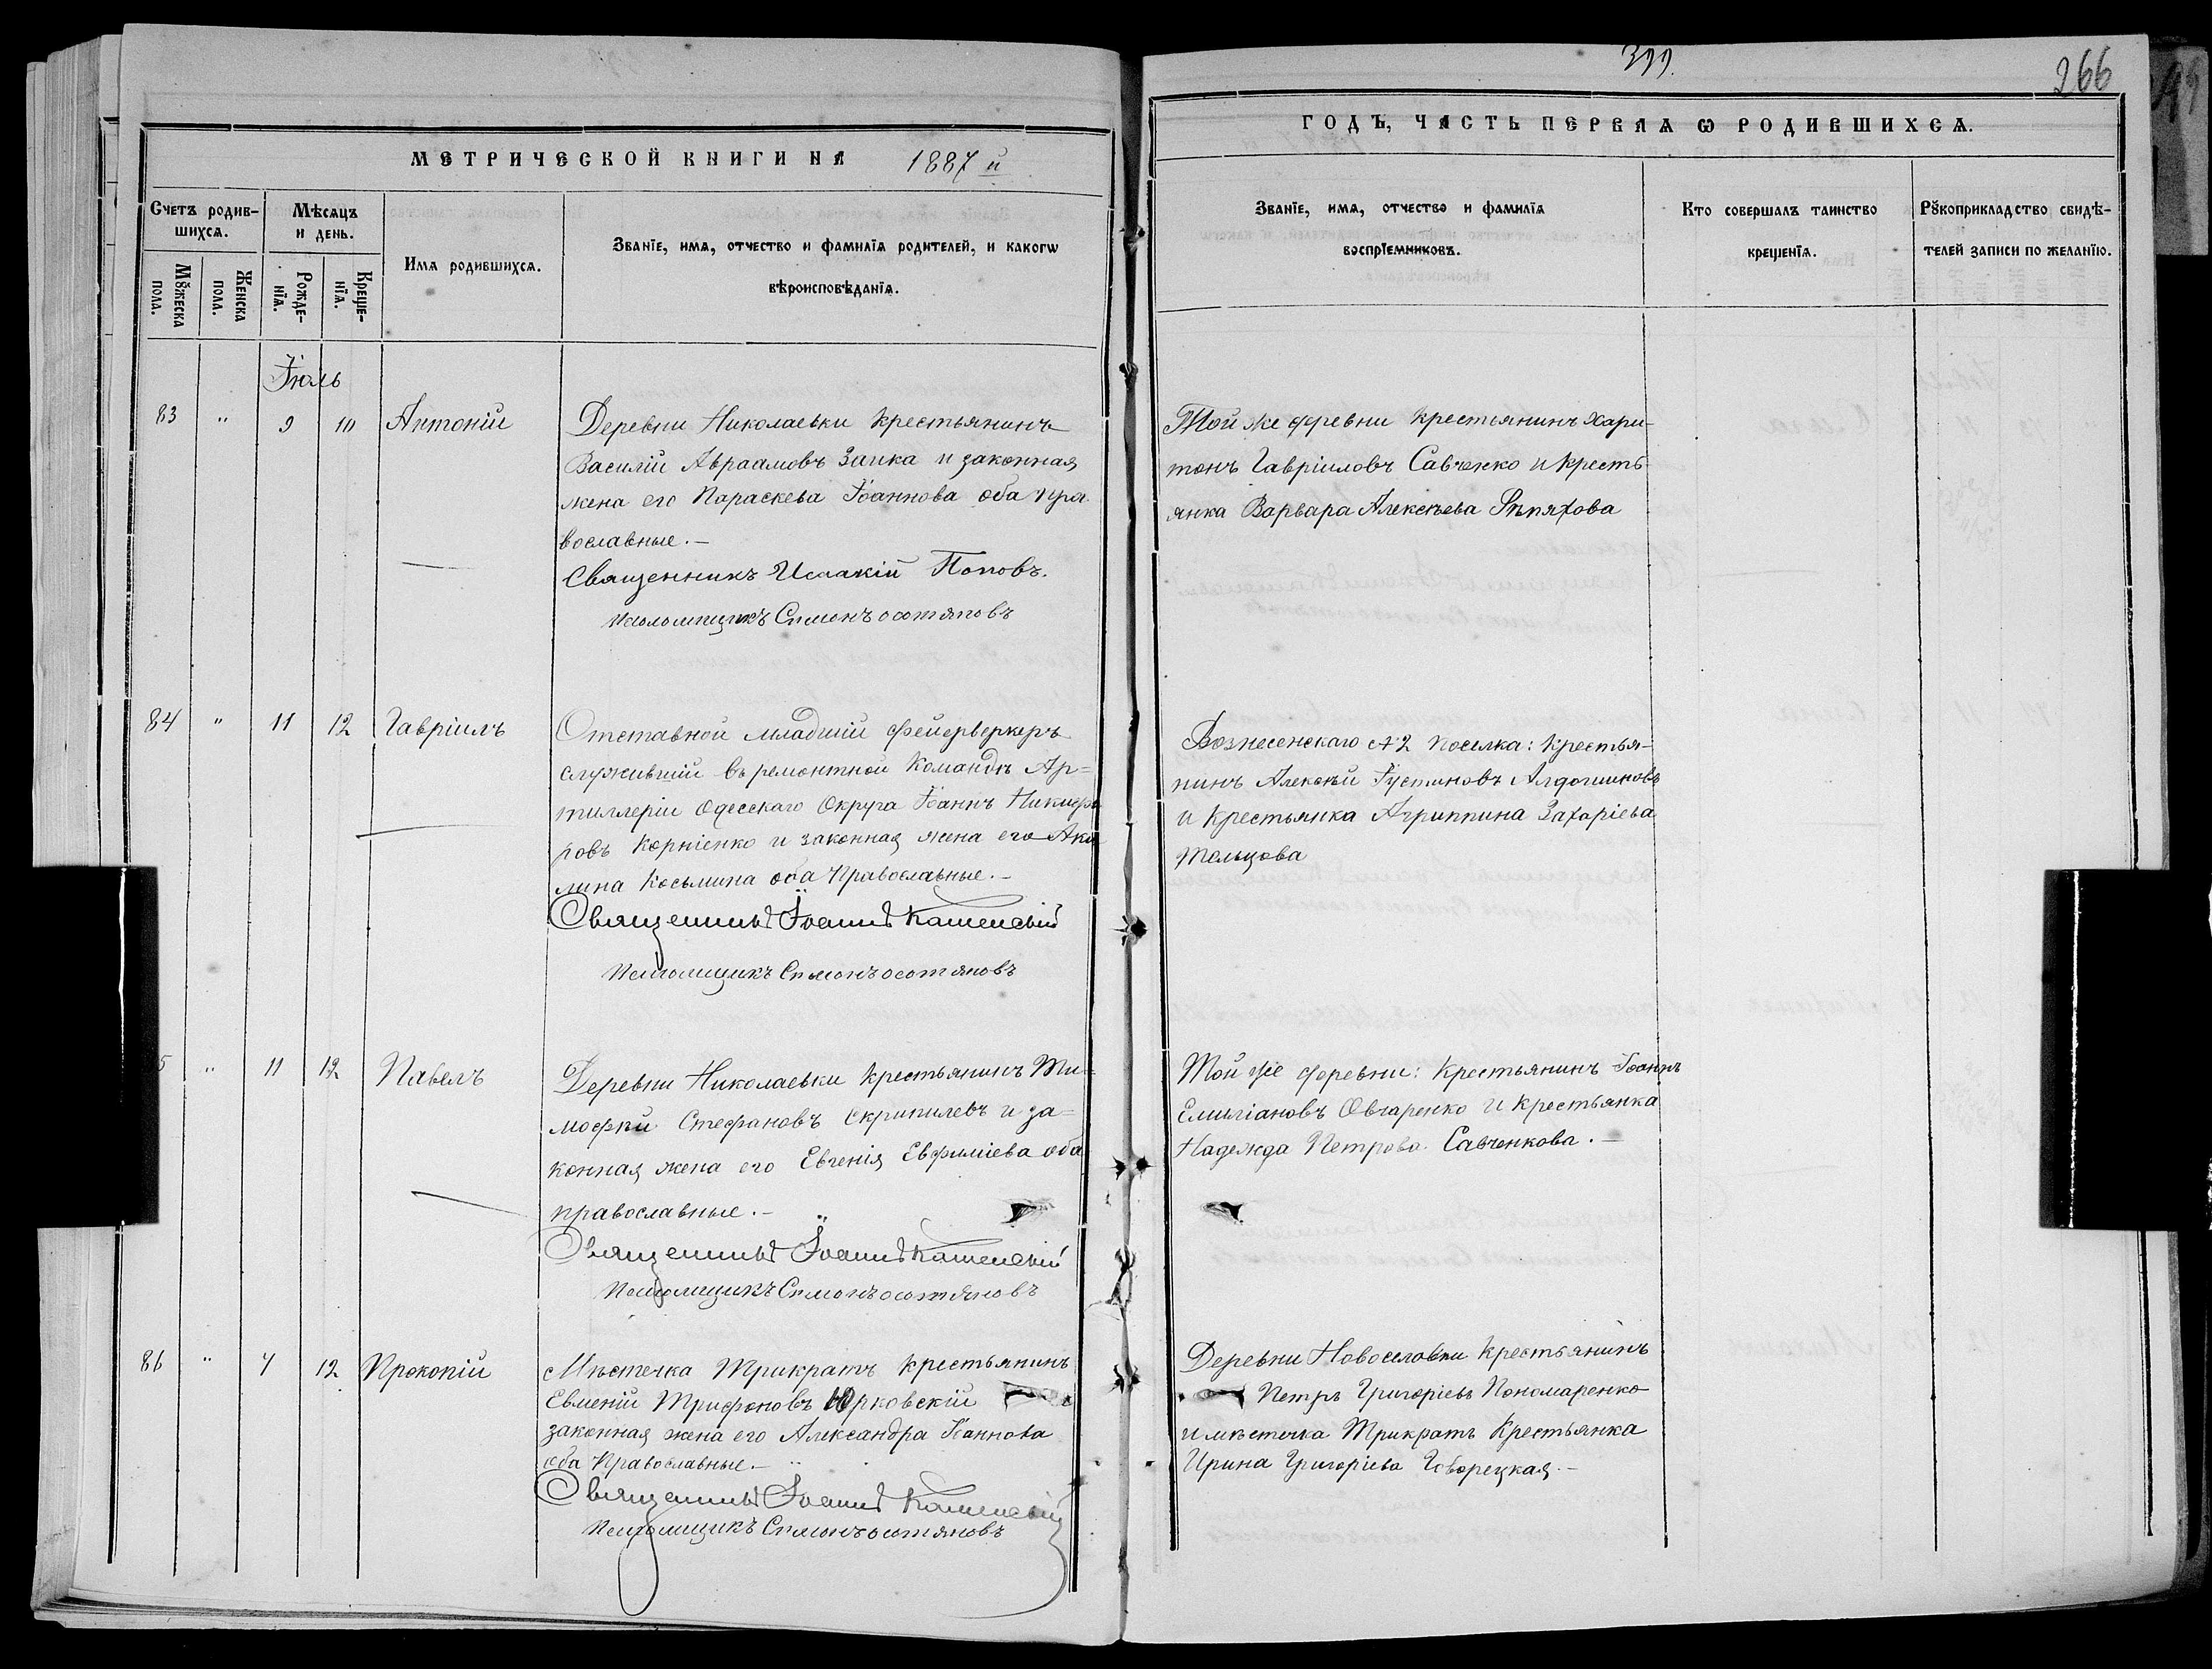 399.
266
МЕТРИЧЕСКОЙ КНИГИ НА 1887 й
ГОДЪ, ЧАСТЬ ПЕРВАЯ Ѡ РОДИВШИХСѦ.
Счетъ родив-
шихсѧ.
Мѣсѧцъ
и день.
Мꙋжеска
пола.
Женска
пола.
Рожде-
нїѧ.
Креще-
нїѧ.
Имѧ родившихсѧ.
Званїе, имѧ, отчество и фамилїѧ родителей, и какогѡ
вѣроисповѣданїѧ.
Званїе, имѧ, отчество и фамилїѧ
воспрїемниковъ.
Кто совершалъ таинство
крещенїѧ.
Рꙋкоприкладство свидѣ-
телей записи по желанїю.
Іюль
83 " 9 10 Антоній
Деревни Николаевки крестьянинъ
Василій Авраамовъ Заика и законная
жена его Параскева Іоаннова оба пра
вославные.—
Священникъ Исаакій Поповъ.
Псаломщикъ Симонъ
Той же деревни крестьянинъ Хари-
тонъ Гавріиловъ Савченко и кресть
янка Варвара Алексѣева Рѣпяхова
84 " 11 12 Гавріилъ
Отставной младшій фейерверкеръ
служившій въ ремонтной командѣ Ар=
тиллеріи Одесскаго Округа Іоаннъ Никифо
ровъ Корніенко и законная жена его Аки
лина Косьмина оба Православные.—
Священникъ Іоаннъ Каменскій
Псаломщикъ Симонъ
Вознесенскаго №2 поселка: Крестья-
нинъ Алексѣй Іустиновъ Алдошиновъ
и крестьянка Агриппина Захаріева
Тельцова
5 " 11 12 Павелъ
Деревни Николаевки крестьянинъ Ти=
моѳей Стефановъ Скрипилевъ и за=
конная жена его Евгенія Евфиміева оба
православные.—
Священникъ Іоаннъ Каменскій
Псаломщикъ Симонъ
Той же деревни: Крестьянинъ Іоаннъ
Емиліановъ Овчаренко и крестьянка
Надежда Петрова Савченкова.—
86 " 7 12 Прокопій
Мѣстечка Трикратъ крестьянинъ
Евменій Трифоновъ Юрковскій
законная жена его Александра Іоаннова
оба Православные.—
Священникъ Іоаннъ Каменскій
Псаломщикъ Симонъ
Деревни Новоселовки крестьянинъ
Петръ Григоріевъ Пономаренко
и мѣстечка Трикратъ Крестьянка
Ирина Григоріева Говорецкая.—